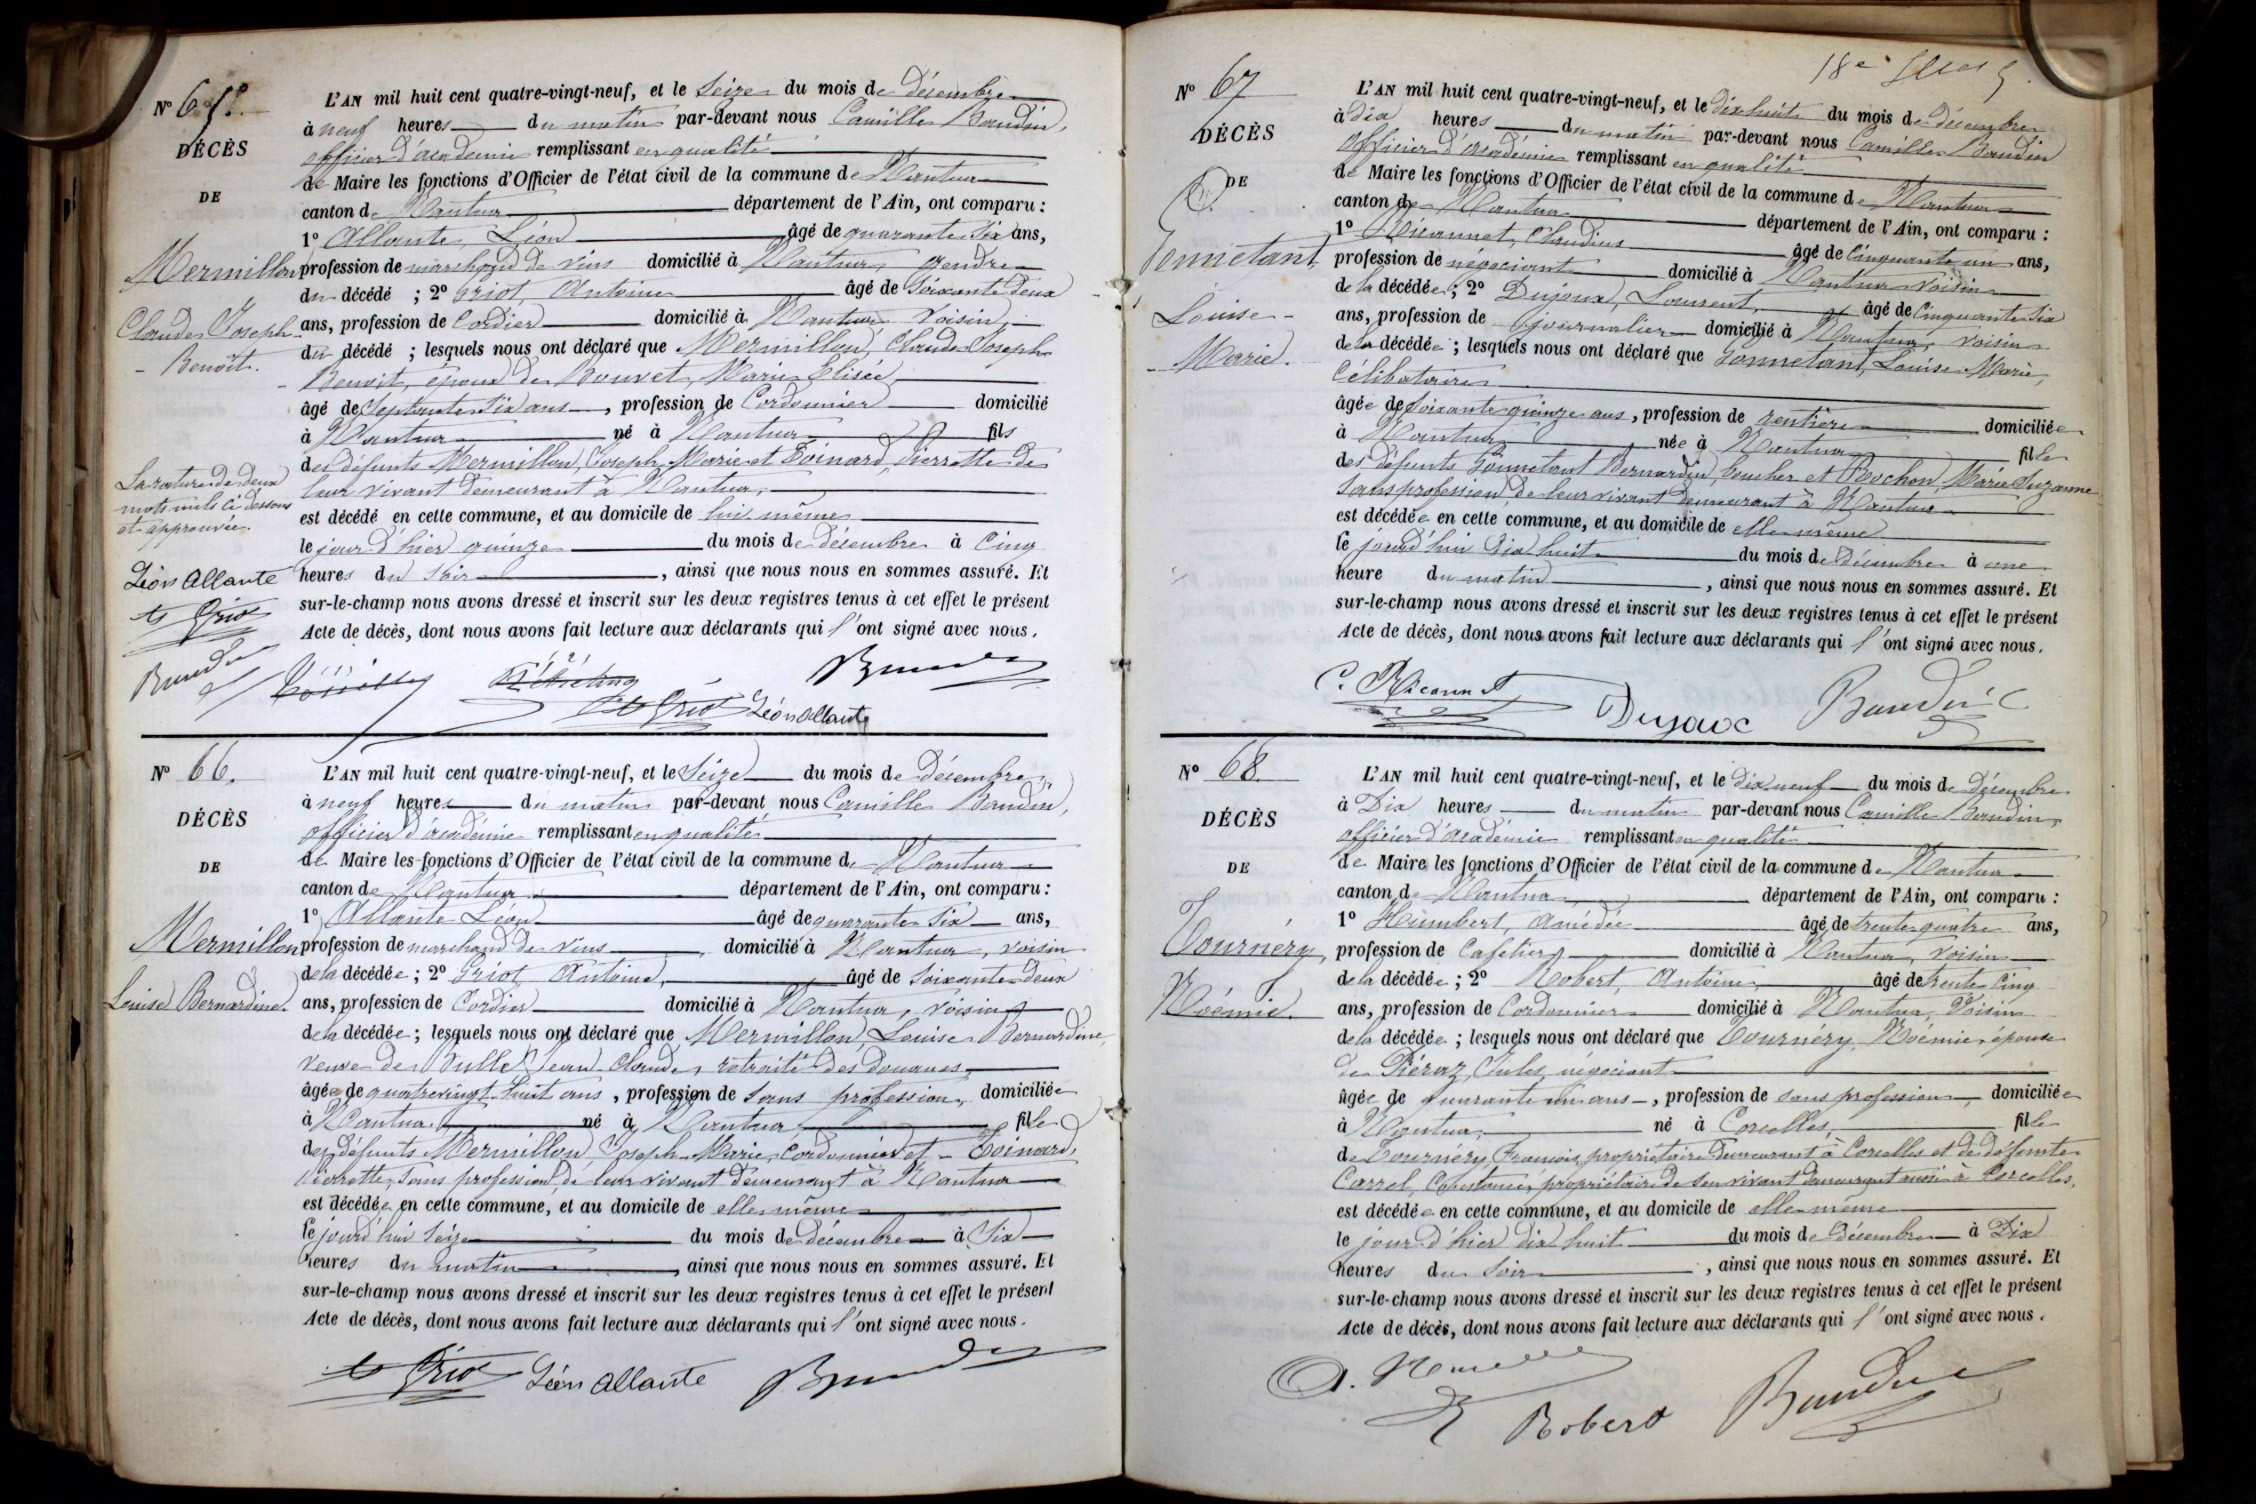 Nº 65.
DÉCÈS
DE
Mermillon
Claude Joseph
- Benoît.
La rature de deux
mots nuls ci dessous
est approuvée.
Léon Allante
At Griot
Baudin
L'AN mil huit cent quatre-vingt-neuf, et le Seize du mois de Décembre
à neuf heures du matin par-devant nous Camille Baudin,
officier d'académie remplissant en qualité
de Maire les fonctions d'Officier de l'état civil de la commune de Nantua
canton de Nantua département de l'Ain, ont comparu :
1º Allante, Léon âgé de quarante six ans,
profession de marchand de vins domicilié à Nantua, gendre
du décédé ; 2º Griot, Antoine âgé de soixante deux
ans, profession de Cordier domicilié à Nantua voisin,
du décédé ; lesquels nous ont déclaré que Mermillon, Claude Joseph
- Benoit, époux de Bouvet, Marie Elisée
âgé de Septante six ans, profession de Cordonnier domicilié
à Nantua né à Nantua fils
des défunts Mermillon, Joseph Marie et Toinard, Pierrette de
leur vivant demeurant à Nantua,
est décédé en cette commune, et au domicile de lui même
le jour d'hier quinze du mois de Décembre à Cinq
heures du soir, ainsi que nous nous en sommes assuré. Et
sur-le-champ nous avons dressé et inscrit sur les deux registres tenus à cet effet le présent
Acte de décès, dont nous avons fait lecture aux déclarants qui l'ont signé avec nous.
Baudin
At Griot Léon Allante
Nº 66.
DÉCÈS
DE
Mermillon
Louise Bernardine.
L'AN mil huit cent quatre-vingt-neuf, et le Seize du mois de Décembre,
à neuf heures du matin par-devant nous Camille Baudin,
officier d'académie remplissant en qualité
de Maire les fonctions d'Officier de l'état civil de la commune de Nantua
canton de Nantua département de l'Ain, ont comparu :
1º Allante Léon âgé de quarante six ans,
profession de marchand de vins domicilié à Nantua, voisin
de la décédée ; 2º Griot Antoine, âgé de Soixante deux
ans, profession de Cordier domicilié à Nantua, voisin
de la décédée ; lesquels nous ont déclaré que Mermillon, Louise Bernardine,
veuve de Vulle Jean Claude, retraité des douanes
âgée de quatrevingt huit ans, profession de sans profession, domiciliée
à Nantua, né à Nantua fille
des défunts Mermillon, Joseph Marie, Cordonnier et - Toinard,
Pierrette, sans profession, de leur vivant demeurant à Nantua
est décédée en cette commune, et au domicile de elle même
le jourd'hui Seize du mois de décembre à Six
heures du matin, ainsi que nous nous en sommes assuré. Et
sur-le-champ nous avons dressé et inscrit sur les deux registres tenus à cet effet le présent
Acte de décès, dont nous avons fait lecture aux déclarants qui l'ont signé avec nous.
At Griot Léon Allante Baudin
18e
Nº 67
DÉCÈS
DE
Gonnetant,
Louise -
- Marie.
L'AN mil huit cent quatre-vingt-neuf, et le dix huit du mois de décembre
à dix heures du matin par-devant nous Camille Baudin
officier d'académie remplissant en qualité
de Maire les fonctions d'Officier de l'état civil de la commune de Nantua
canton de Nantua département de l'Ain, ont comparu :
1º Claudius âgé de Cinquante un ans,
profession de négociant domicilié à Nantua voisin
de la décédée ; 2º Dujoux, Laurent, âgé de Cinquante six
ans, profession de journalier domicilié à Nantua, voisin
de la décédée ; lesquels nous ont déclaré que Gonnetant, Louise Marie,
Célibataire
âgée de Soixante quinze ans, profession de rentière domiciliée
à Nantua née à Nantua fille
des défunts Gonnetant Bernardin, boucher et Bochon, Marie Suzanne
sans profession de leur vivant demeurant à Nantua
est décédée en cette commune, et au domicile de elle même
le jourd'hui Dix huit du mois de Décembre à une
heure du matin, ainsi que nous nous en sommes assuré. Et
sur-le-champ nous avons dressé et inscrit sur les deux registres tenus à cet effet le présent
Acte de décès, dont nous avons fait lecture aux déclarants qui l'ont signé avec nous.
Dujoux Baudin
Nº 68.
DÉCÈS
DE
Tournéry,
Noémie.
L'AN mil huit cent quatre-vingt-neuf, et le dix neuf du mois de décembre
à Dix heures du matin par-devant nous Camille Baudin,
officier d'académie remplissant en qualité
de Maire les fonctions d'Officier de l'état civil de la commune de Nantua
canton de Nantua département de l'Ain, ont comparu :
1º Humbert, Amédée âgé de trente quatre ans,
profession de Cafetier domicilié à Nantua, voisin
de la décédée ; 2º Robert, Antoine, âgé de trente cinq
ans, profession de Cordonnier domicilié à Nantua, Voisin
de la décédée ; lesquels nous ont déclaré que Tournéry, Noémie, épouse
de Piéraz, Jules, négociant
âgée de quarante un ans, profession de sans profession, domiciliée
à Nantua, né à Corcelles, fille
de Tournéry, François, propriétaire demeurant à Corcelles et de défunte
Carrel, Constance, propriétaire de son vivant demeurant aussi à Corcelles,
est décédée en cette commune, et au domicile de elle même
le jour d'hier dix huit du mois de Décembre à Dix
heures du soir, ainsi que nous nous en sommes assuré. Et
sur-le-champ nous avons dressé et inscrit sur les deux registres tenus à cet effet le présent
Acte de décès, dont nous avons fait lecture aux déclarants qui l'ont signé avec nous.
Robert Baudin